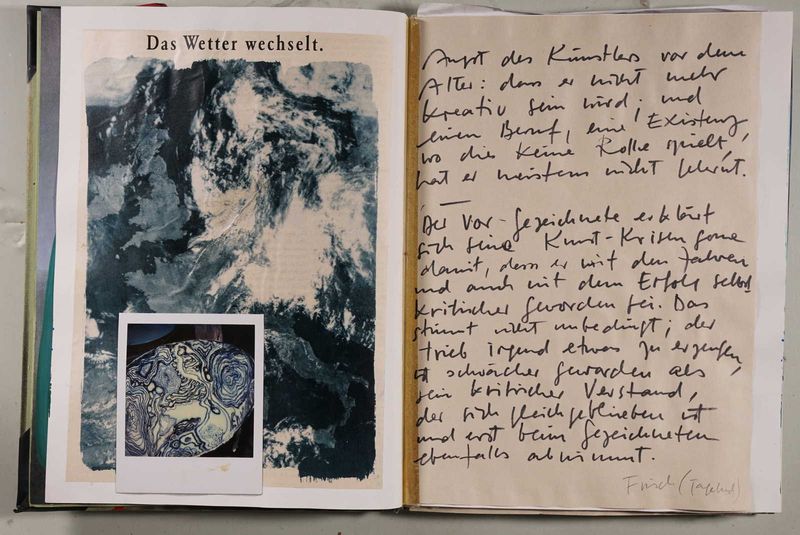 Das Wetter wechselt.
Angst des Künstlers vor dem
Alter: dass er nicht mehr
kreativ sein wird; und
einen Beruf, eine Existenz,
wo dies keine Rolle spielt,
hat er meistens nicht gelernt.
Der Vor-gezeichnete erklärt
sich seine Kunst-Krisen gerne
damit, dass er mit den Jahren
und auch mit dem Erfolg selbst-
kritischer geworden sei. Das
stimmt nicht unbedingt; der
Trieb irgend etwas zu erzeugen,
ist schwächer geworden als
sein kritischer Verstand,
der sich gleichgeblieben ist
und erst beim Gezeichneten
ebenfalls abnimmt.
Frisch (Tagebuch)